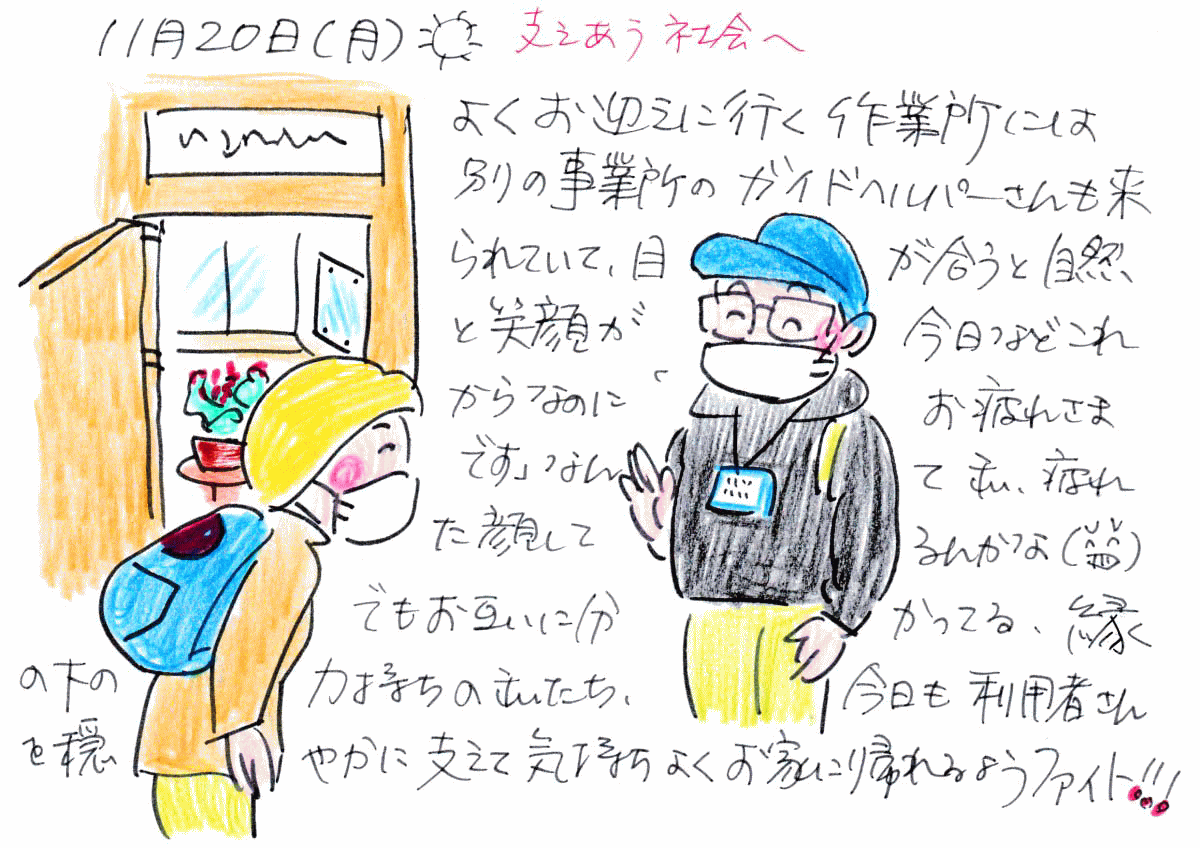 11月20日(月) 支えあう社会へ
よくお迎えに行く作業所には
別の事業所のガイドヘルパーさんも来
られていて、目が合うと自然
と笑顔が 今日はどこれ
からなのに「お疲れさま
です」なんて 疲れ
た顔してるんかな(笑)
でもお互いに分かってる、縁
の下の力持ちの私たち、今日も利用者さん
を穏やかに支えて気持ちよくお家に帰れるようファイト!!!